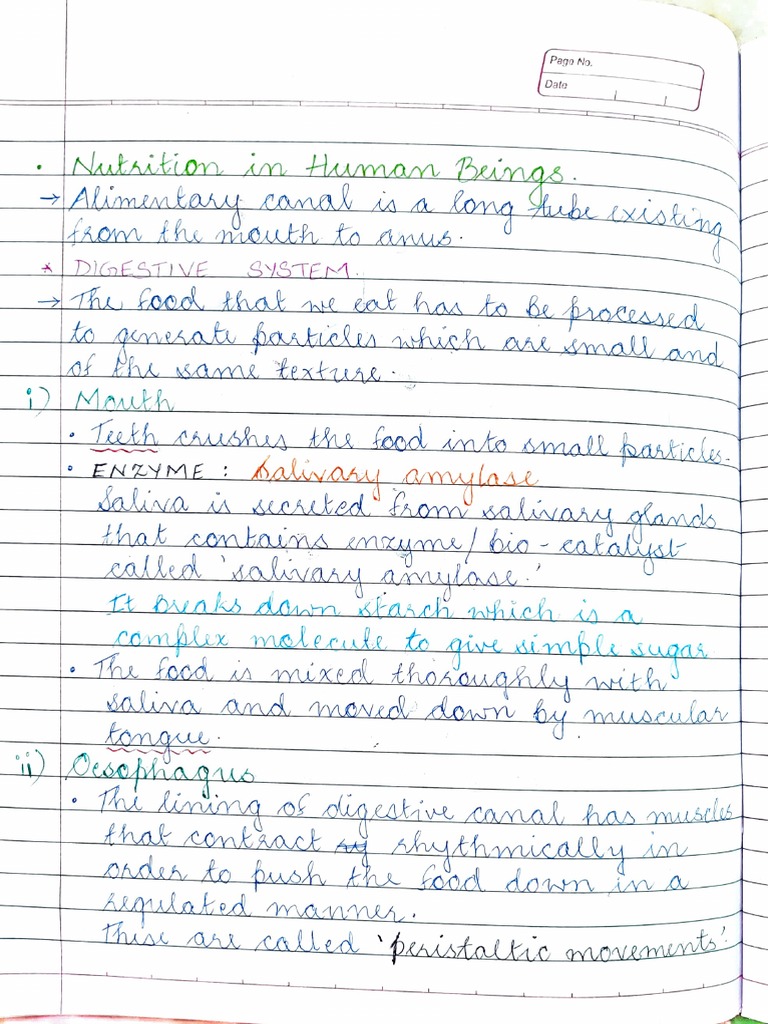 Page No.
Date
• Nutrition in Human Beings.
→ Alimentary canal is a long tube existing
from the mouth to anus.
* DIGESTIVE SYSTEM.
→ The food that we eat has to be processed
to generate particles which are small and
of the same texture.
i) Mouth
• Teeth crushes the food into small particles.
• ENZYME : Salivary amylase
Saliva is secreted from salivary glands
that contains enzyme/bio-catalyst
called 'salivary amylase.'
It breaks down starch which is a
complex molecule to give simple sugar
• The food is mixed thoroughly with
saliva and moved down by muscular
tongue.
ii) Oesophagus
• The lining of digestive canal has muscles
that contract rhythmically in
order to push the food down in a
regulated manner.
These are called 'peristaltic movements'.